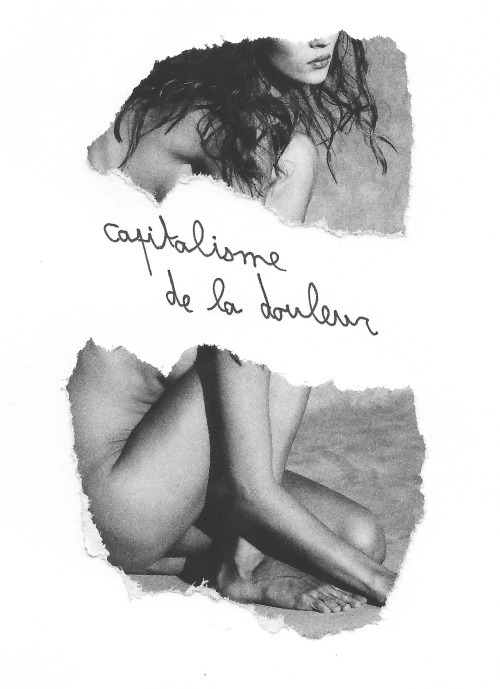 capitalisme
de la douleur